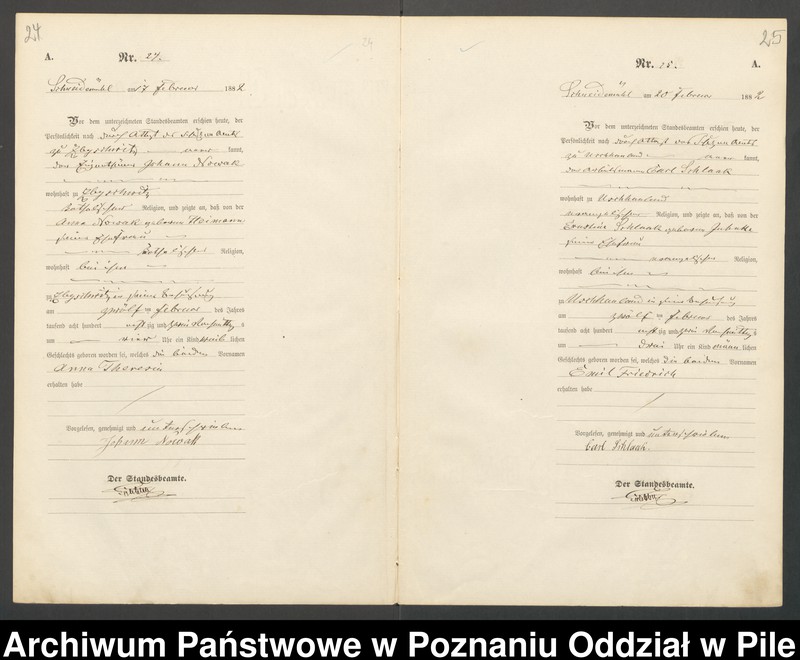 24
A.
Nr. 24.
Schneidemühl am 17 Februar 1882
Vor dem unterzeichneten Standesbeamten erschien heute, der
Persönlichkeit nach durch Attest des
zu kannt,
den Eigenthümer Johann Nowak
wohnhaft zu
katholischer Religion, und zeigte an, daß von der
Anna Nowak geborene Heimann
seine Ehefrau
katholischer Religion,
wohnhaft bei ihm
zu in seine Behausung
am zwölften Februar des Jahres
tausend acht hundert achtzig und zwei Nachmittags
um vier Uhr ein Kind weiblichen
Geschlechts geboren worden sei, welches die beiden Vornamen
Anna
erhalten habe
Vorgelesen, genehmigt und unterschrieben
Johann Nowak
Der Standesbeamte.
25
Nr. 25.
A.
Schneidemühl am 20 Februar 1882
Vor dem unterzeichneten Standesbeamten erschien heute, der
Persönlichkeit nach durch Attest des
zu kannt,
den Arbeitsmann Carl Schlaak
wohnhaft zu
evangelischer Religion, und zeigte an, daß von der
Schlaak geborene
seine Ehefrau
evangelischer Religion,
wohnhaft bei ihm
zu in seine Behausung
am zwölften Februar des Jahres
tausend acht hundert achtzig und zwei Nachmittags
um drei Uhr ein Kind männlichen
Geschlechts geboren worden sei, welches die beiden Vornamen
Emil Friedrich
erhalten habe
Vorgelesen, genehmigt und unterschrieben
Carl Schlaak.
Der Standesbeamte.
Archiwum Państwowe w Poznaniu Oddział w Pile